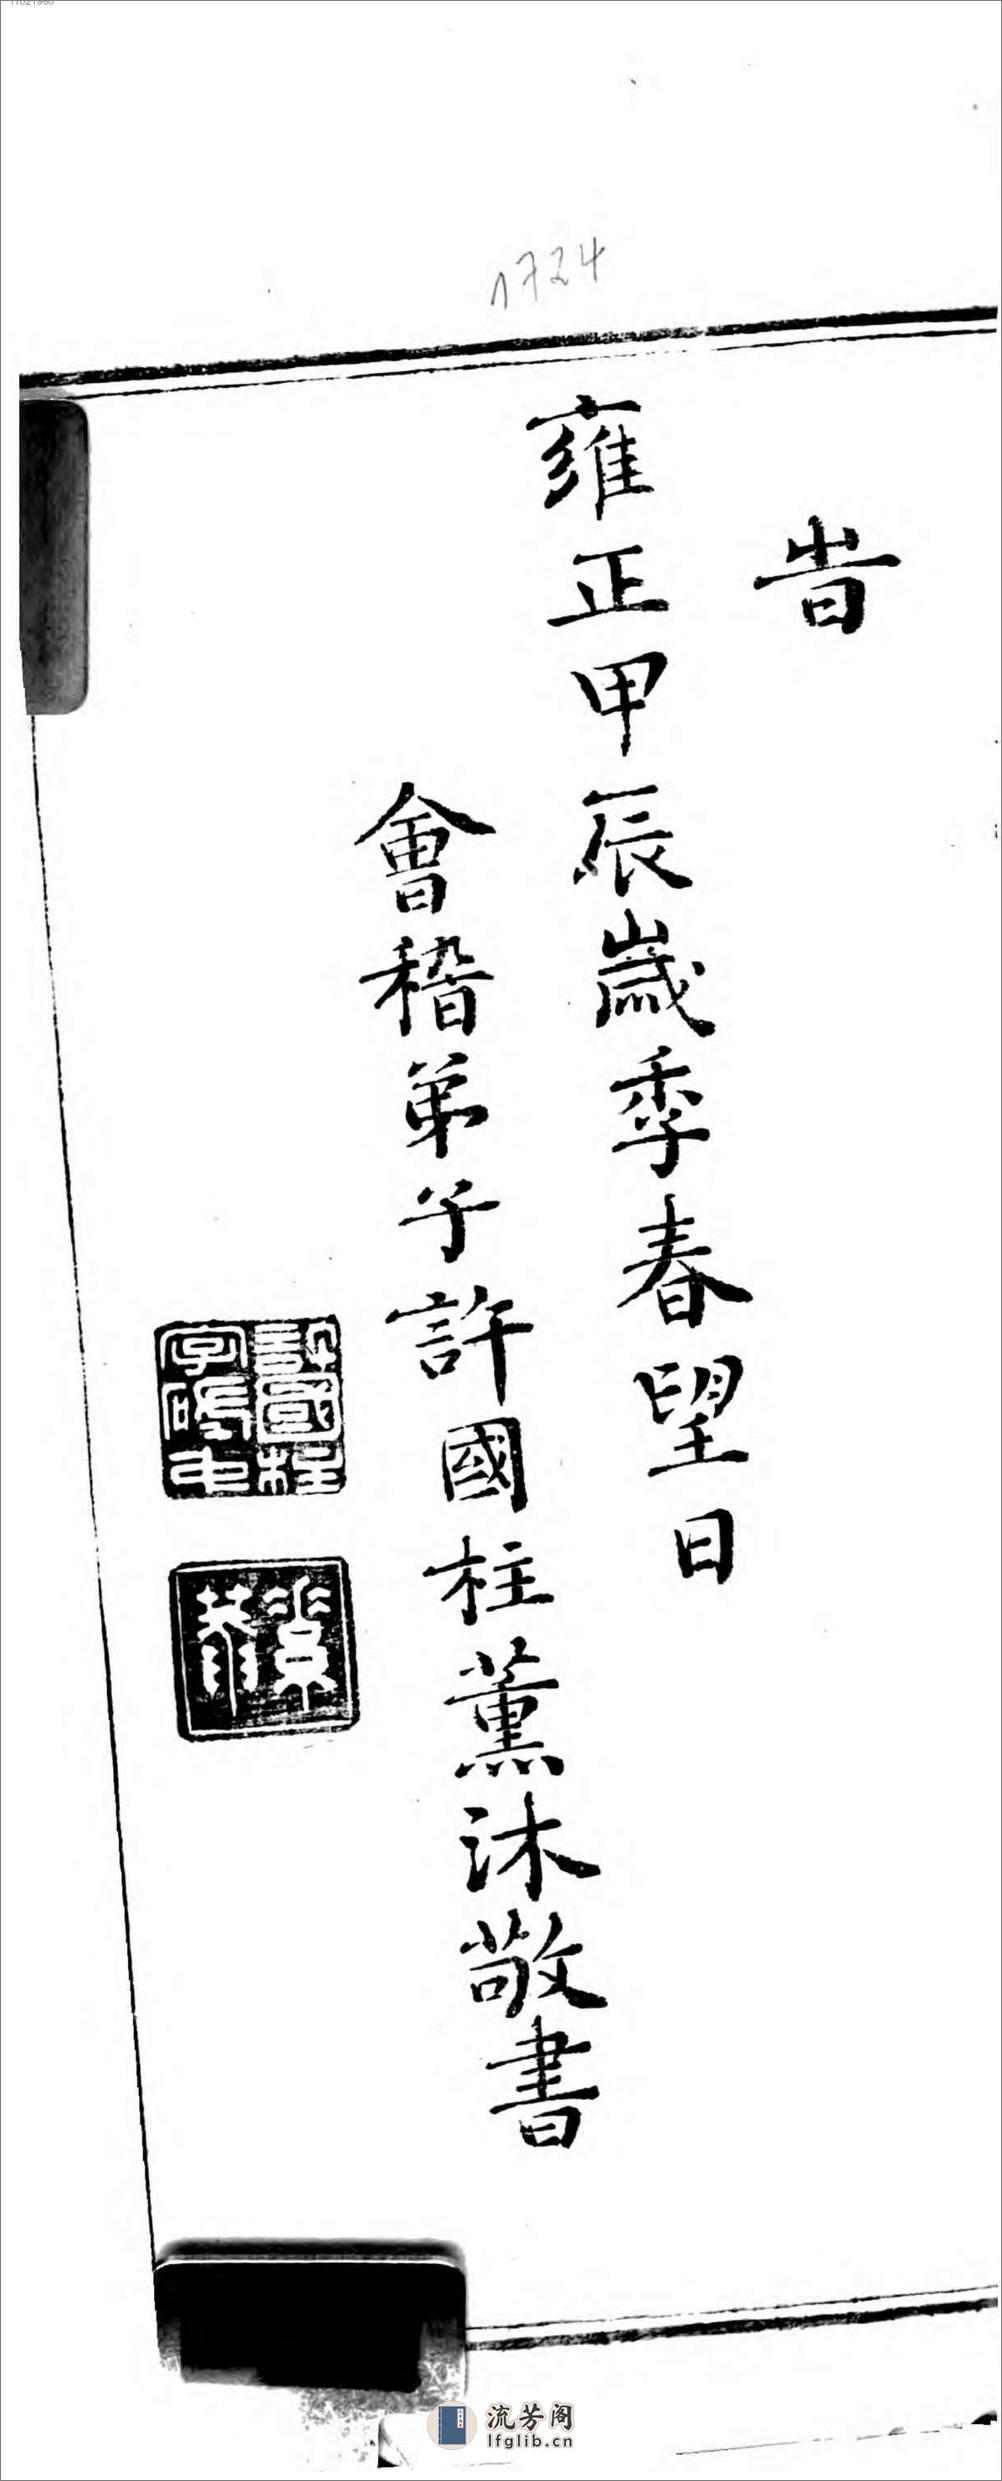 11021960
1724
旹
雍正甲辰歲季春望日
會稽弟子許國柱薰沐敬書
許國柱
字
印
流芳阁
lfglib.cn